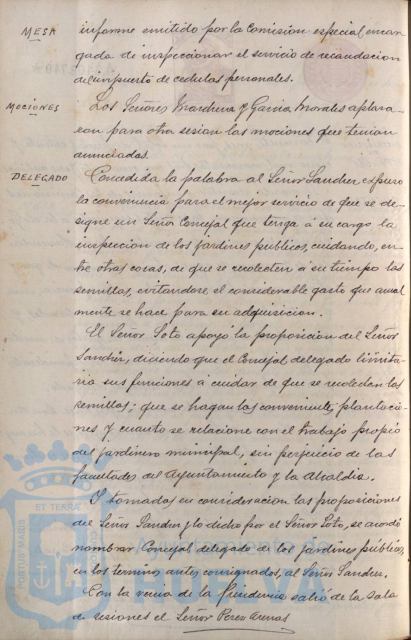 MESA
informe emitido por la Comision especial encar
gada de inspeccionar el servicio de recaudacion
del impuesto de cedulas personales.
MOCIONES
Los Señores Marchena y Garcia Morales aplaza
ron para otra sesion las mociones que tenian
anunciadas.
DELEGADO
Concedida la palabra al Señor Sanchez expuso
la conveniencia para el mejor servicio de que se de-
signe un Señor Concejal que tenga á su cargo la
inspeccion de los jardines publicos, cuidando, en-
tre otras cosas, de que se recolecten á su tiempo las
semillas, evitandose el considerable gasto que anual
mente se hace para su adquisicion.
El Señor Soto apoyó la proposicion del Señor
Sanchez, diciendo que el Concejal delegado limita-
ria sus funciones a cuidar de que se recolecten las
semillas; que se hagan las convenientes plantacio-
nes y cuanto se relacione con el trabajo propio
del jardinero municipal, sin perjuicio de las
facultades del Ayuntamiento y la Alcaldia.
Y tomadas en consideracion las proposiciones
del Señor Sanchez y lo dicho por el Señor Soto, se acordó
nombrar Concejal delegado de los jardines publicos,
en los terminos antes consignados, al Señor Sanchez.
Con la venia de la Presidencia salió de la sala
de sesiones el Señor Perez
PORTUS MARIS
ET TERRAE
Ayuntamiento de
HUELVA